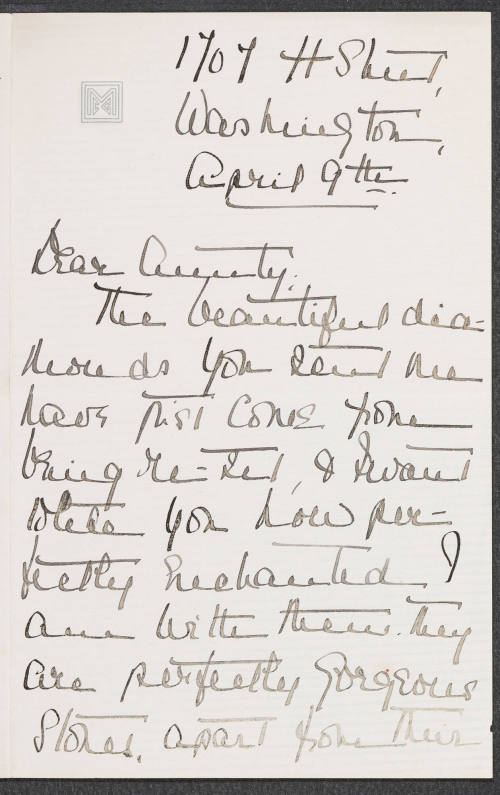 1707 H Street,
Washington,
April 9th
Dear Aunty.
The beautiful dia-
monds you sent me
have just come from
being re-set, & I want
to tell you how per-
fectly enchanted I
am with them. They
are perfectly gorgeous
stones, apart from their